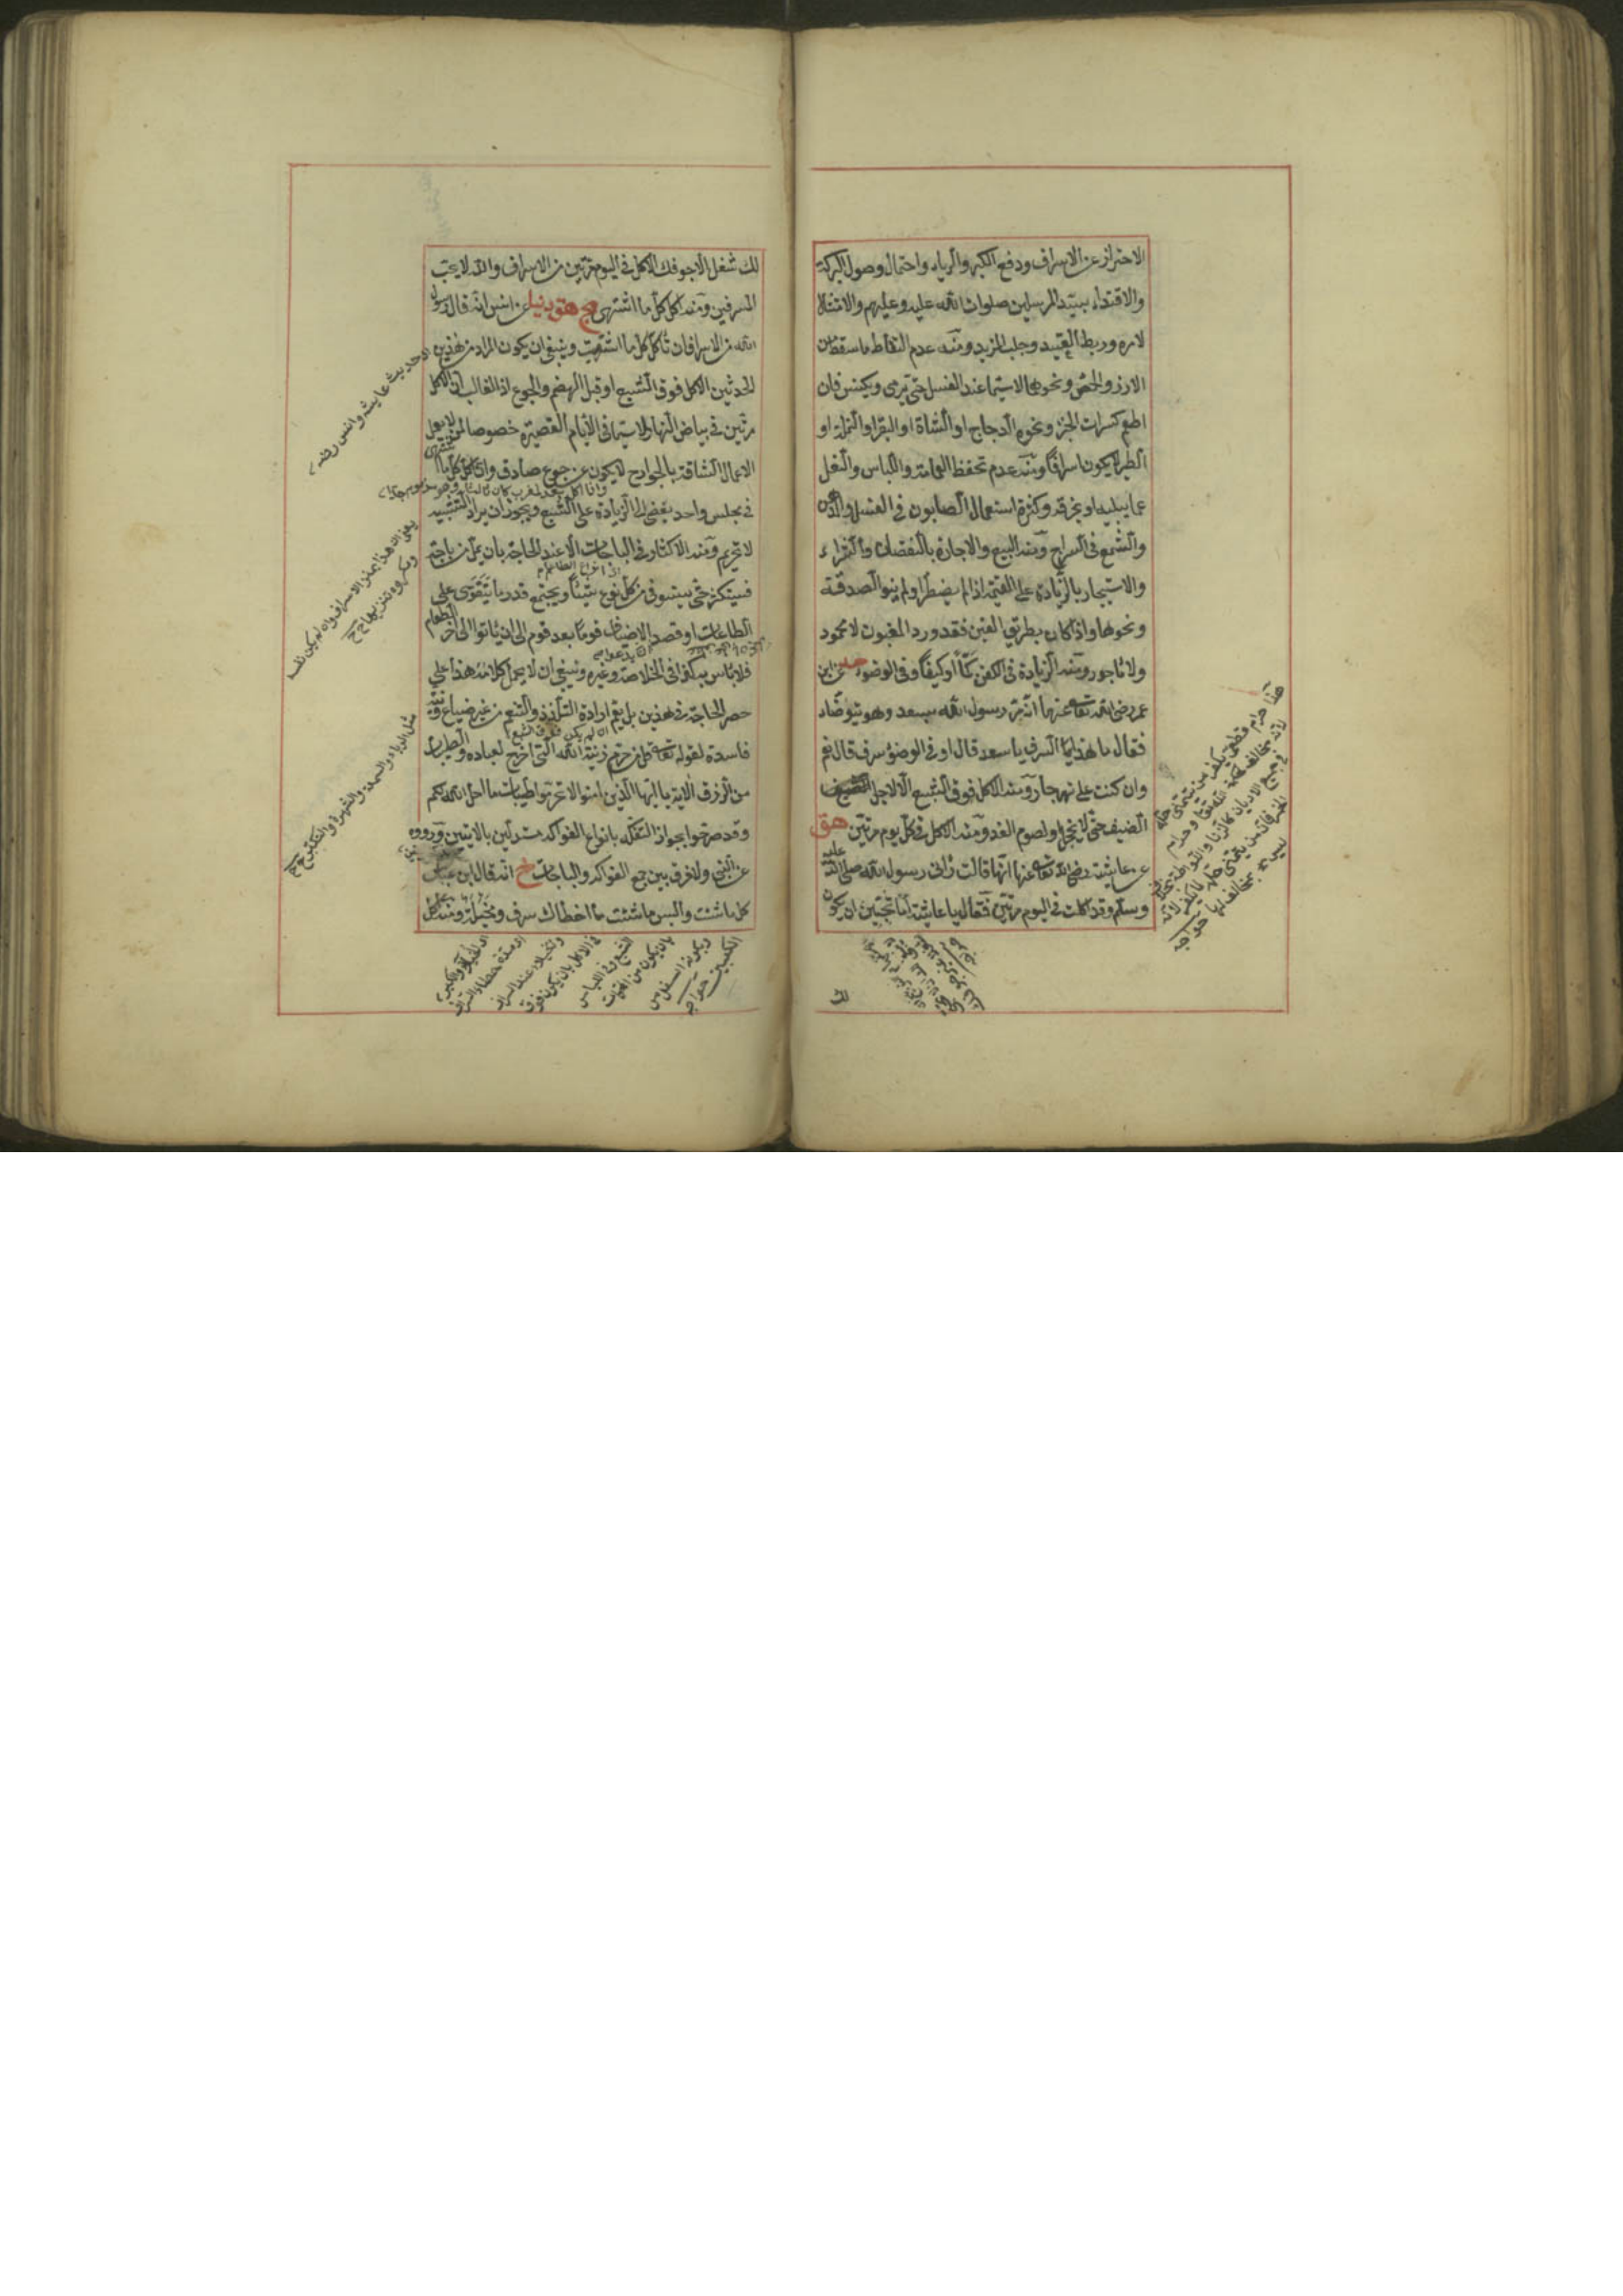 الاحتراز عن الاسراف ودفع الكبر والرياء واحتمال وصول البركة
والاقتداء بسيد المرسلين صلوات الله عليه وعليهم والامتثال
لامره وربط العتيد وجلب المزيد ومنه عدم التقاط ما سقط من
الارز والحمص ونحوها لاسيما عند الغسل حتى يرمى ويكنس فان
اطعم كسرات الخبز ونحوه الدجاج او الشاة او البقر او النملة او
الطير لا يكون اسرافا ومنه عدم تحفظ العمامة واللباس والنعل
عما يبليه او يخرقه وكثرة استعمال الصابون في الغسل والدهن
والشمع في السراج ومنه البيع والاجارة بالنقصان والشراء
والاستيجار بالزيادة على القيمة اذا لم يضطر ولم ينو الصدقة
ونحوها واذا كان بطريق الغبن فقد ورد المغبون لا محمود
ولا مأجور ومنه الزيادة في الكفن كما او كيفا وفي الوضوء عن ابن
عمر رضى الله تعالى عنهما انه مر رسول الله بسعد وهو يتوضأ
فقال ما هذا السرف يا سعد قال اوفي الوضوء سرف قال نعم
وان كنت على نهر جار ومنه الاكل فوق الشبع الا لاجل
الضيف حتى لا يخجل او لصوم الغد ومنه الاكل في كل يوم مرتين هق
عن عايشة رضى الله تعالى عنها انها قالت رانى رسول الله صلى الله عليه
وسلم وقد اكلت في اليوم مرتين فقال يا عايشة اما تحبين ان يكون
لك
هذا حرام قطعى يكفر من يتمنى حله
لانه مخالف لحكمة الله تعالى وحرام
في جميع الاديان كالزنا واللواطة بخلاف
الخمر فانه من يتمنى حله لا يكفر لانه
ليس بمخالف لها خواجه
لك شغل الا جوفك الاكل في اليوم مرتين من الاسراف والله لا يحب
المسرفين ومنه اكل كل ما اشتهى مج هق دنيا عن انس انه قال رسول
الله من الاسراف ان تأكل كل ما اشتهيت وينبغي ان يكون المراد من هذين
الحديثين الاكل فوق الشبع او قبل الهضم والجوع اذ الغالب ان الاكل
مرتين في بياض النهار ولاسيما في الايام القصيرة خصوصا لمن لا يعمل
الاعمال الشاقة بالجوارح لا يكون عن جوع صادق وان اكل كل ما يشتهى
في مجلس واحد يفضى الى الزيادة على الشبع ويجوز ان يراد التشبيه
لا تحريم ومنه الاكثار في الباجات الا عند الحاجة بان يمل من باجة
فيستكثر حتى يستوفى من كل نوع شيئا ويجتمع قدر ما يتقوى على
الطاعات او قصد الاضياف قوما بعد قوم الى ان يأتوا الى آخر الطعام
فلا بأس به كذا في الخلاصة وغيره وينبغي ان لا يحمل كلامه هذا على
حصر الحاجة في هذين بل يعم ارادة التلذذ والتنعم من غير ضياع ونية
فاسدة لقوله تعالى قل من حرم زينة الله التى اخرج لعباده والطيبات
من الرزق الآية يا ايها الذين امنوا لا تحرموا طيبات ما احل الله لكم
وقد صرحوا بجواز التفكه بانواع الفواكه مستدلين بالآيتين وروده
عن النبي ولا فرق بين جمع الفواكه والباجات خ انه قال ابن عباس
كل ما شئت والبس ما شئت ما اخطاك سرف ومخيلة ومنه اكل
اى حديث عايشه وانس رضه
يعنى ان هذا يمنزلة الاسراف وان لم يكن نفسه
ومكروه تنزيها ح
مثل الرياء والسمعة والشهرة والتكبر ح